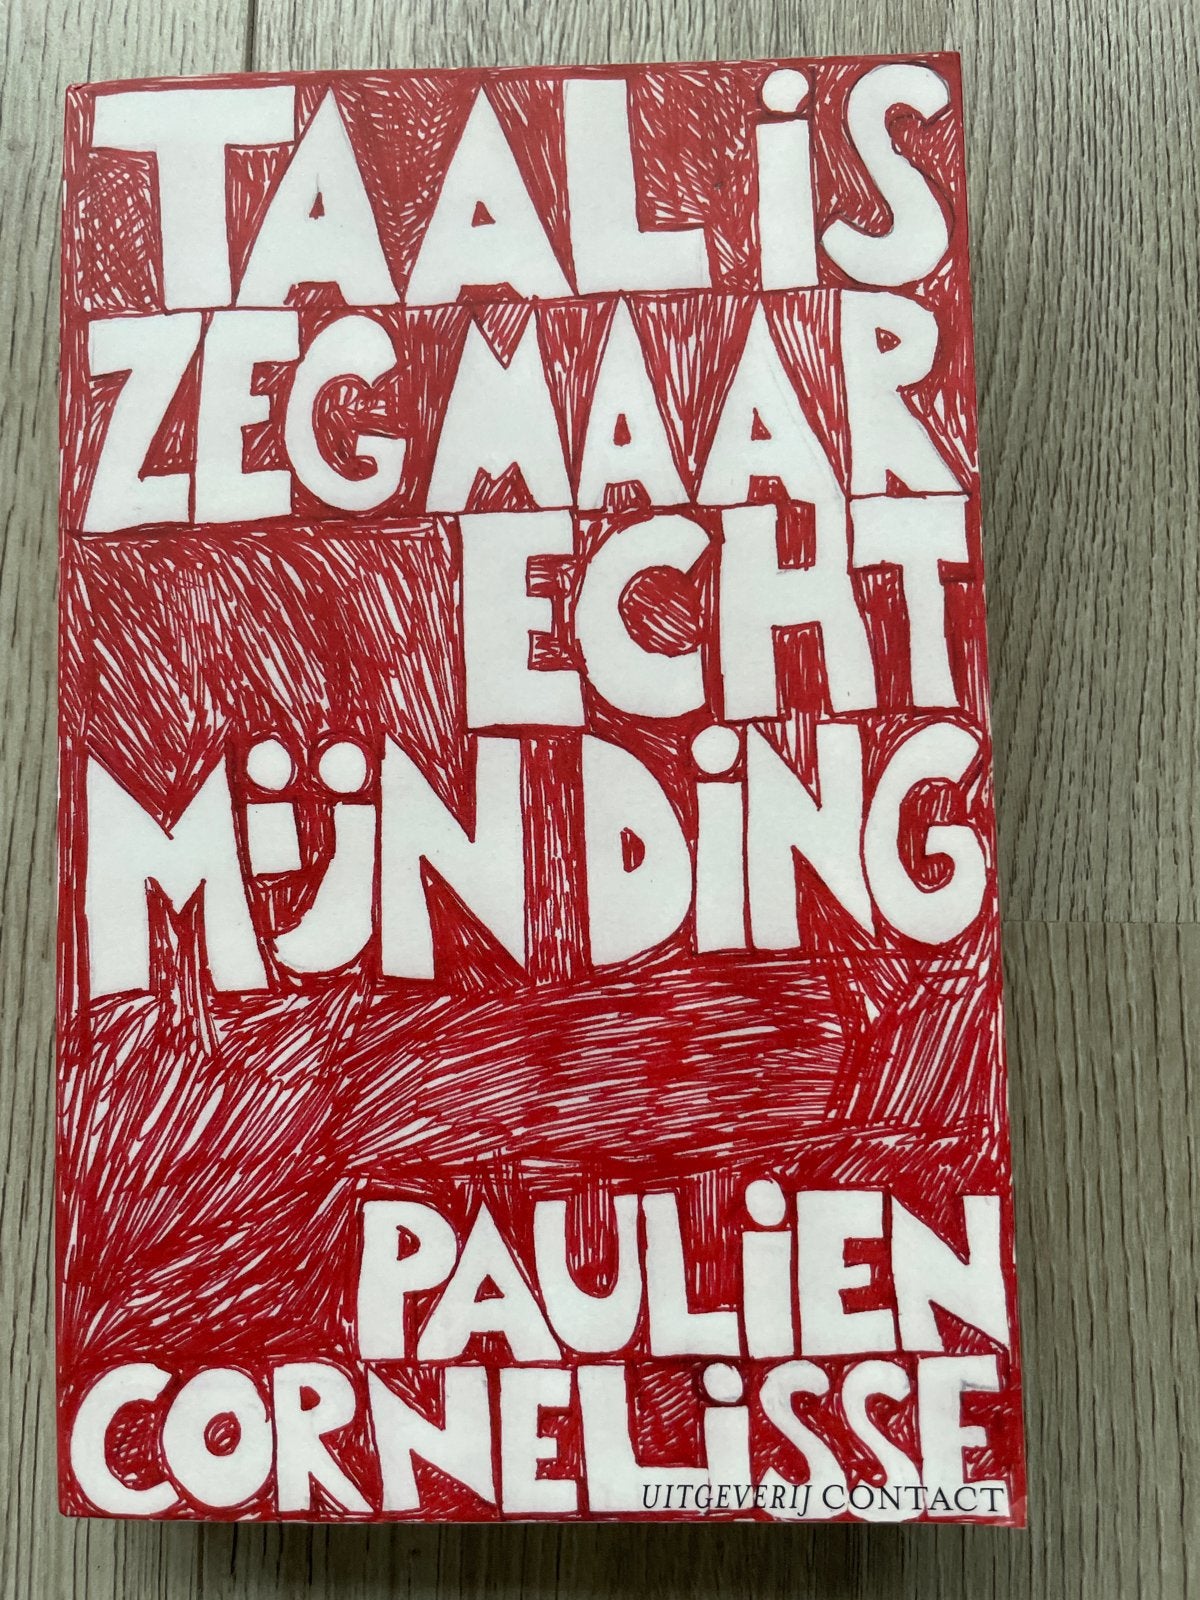 TAAL iS
ZEG MAAR
ECHT
MijN DiNG
PAULiEN
CORNELiSSE
UITGEVERIJ CONTACT